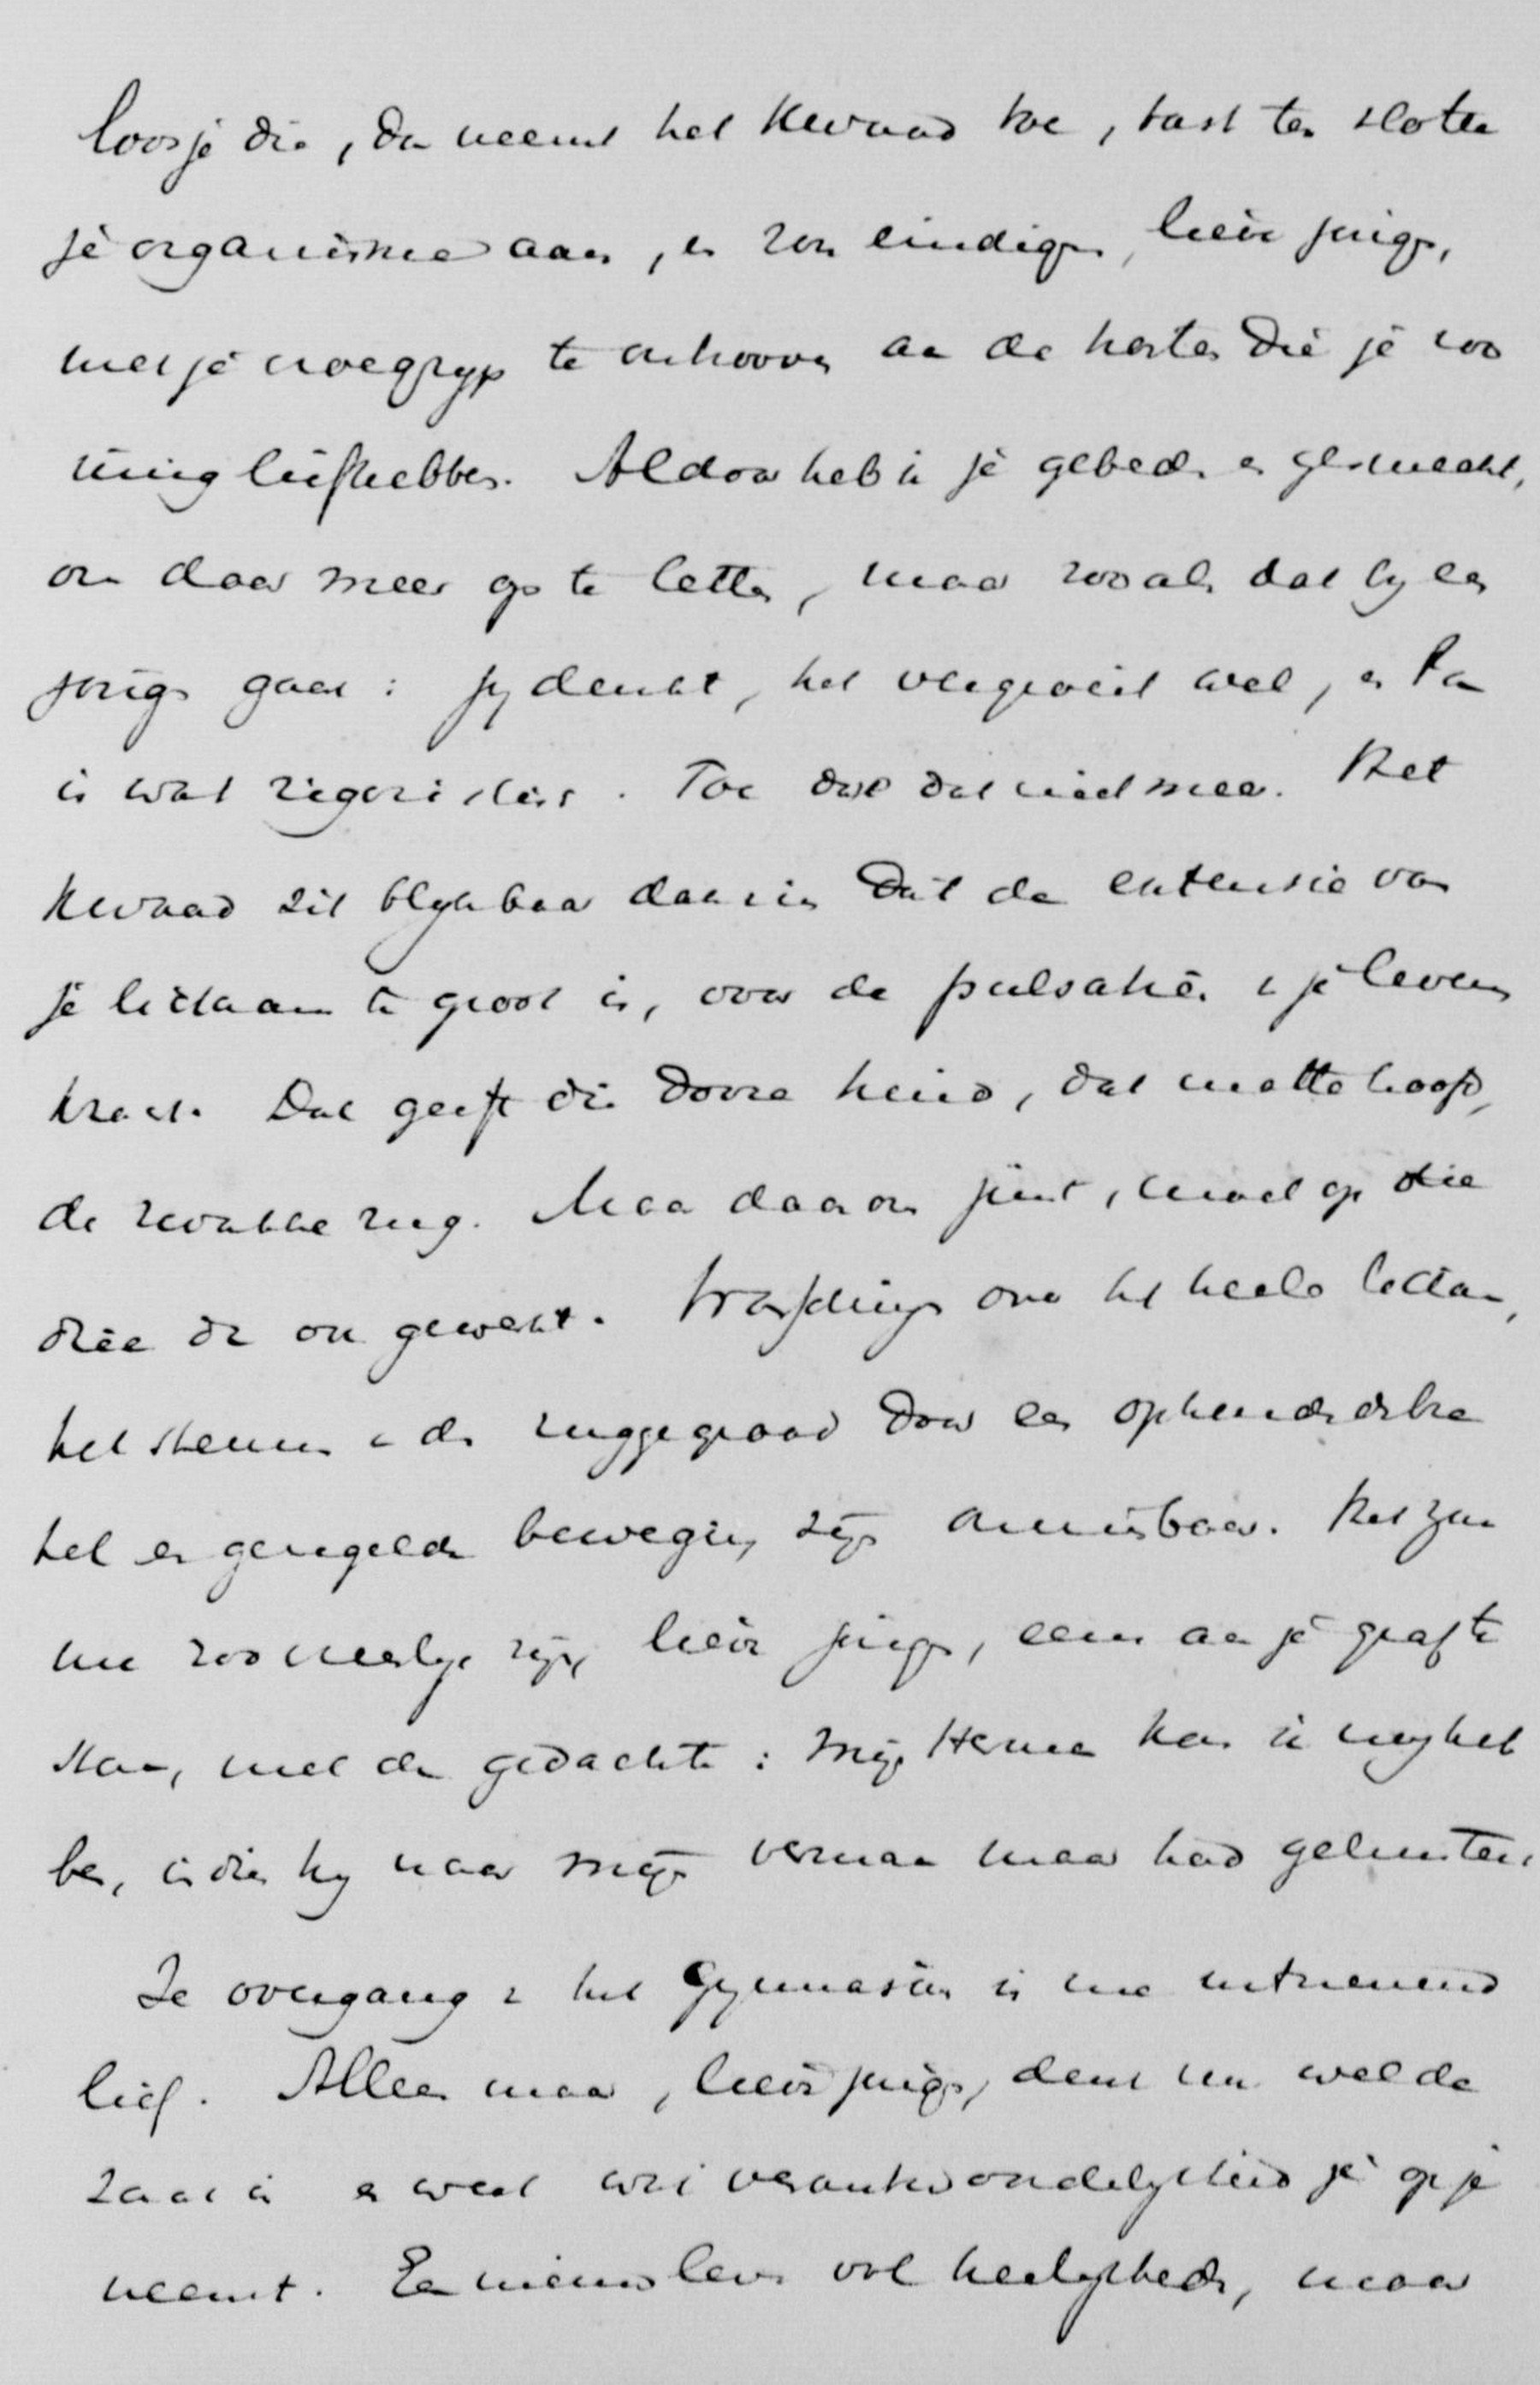 loos je die, dan neemt het kwaad toe, tast ten slotte
je organisme aan, en zou eindigen, lieve jonge,
met je vroegtyd te ontrooven aan de harten die je zoo
innig liefhebben. Aldoor heb ik je gebeden en gesmeekt,
om daar meer op te letten, maar zooals dat by een
jonge gaat: jy denkt, het vergroeit wel, en Pa
is wat rigoristisch. Toe doe dat niet meer. Het
kwaad zit blykbaar daarin dat de extensie van
je lichaam te groot is, voor de pulsatie in je levens
kracht. Dat geeft die doove huid, dat matte hoofd,
de zwakke rug. Maar daarom juist, moet op die
drie de on gewerkt. Wasschingen over het heele lichaam,
het steunen in de ruggegraad door een ophoudende
hel en geregelde beweging zyn onmisbaar. Het zou
me zoo vreeselyk zyn, lieve jonge, eens aan je graf te
staan, met de gedachte: myn Herman kon ik nog heb
ben, indien hy naar myn vermaan maar had geluisterd.
Je overgang in het Gymnasium is me uitnemend
lief. Alleen maar, lieve jonge, denk nu wel de
zaak in en weet wel verantwoordelykheid je op je
neemt. Een nieuw leven vol heerlykheden, maar